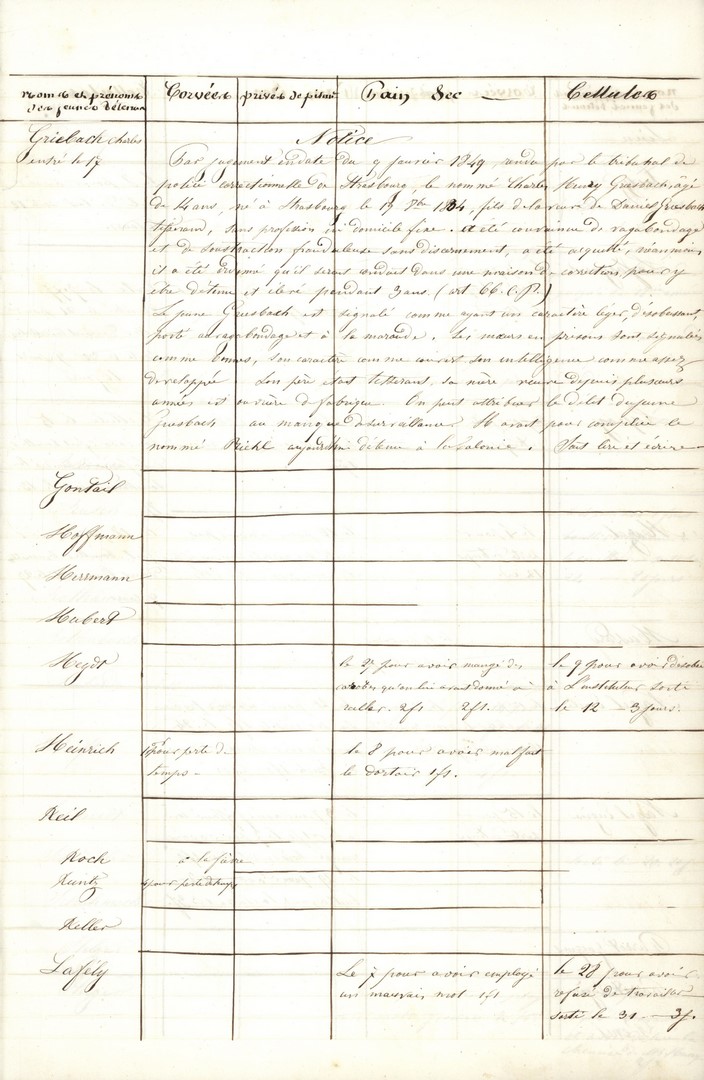 noms et prénoms
des jeunes détenus
Corvées
privés de pitance
Pain Sec
Cellules
Griebach Charles
entré le 17
Notice
Par jugement en date du 9 janvier 1849, rendu par le tribunal de
police correctionnelle de Strasbourg, le nommé Charles Henry Griesbach, âgé
de 14 ans, né à Strasbourg le 19 7bre 1834, fils de la veuve de Daniel Griesbach
tisserand, sans profession ni domicile fixe. a été convaincu de vagabondage
et de soustraction frauduleuse sans discernement, a été acquitté, néanmoins
il a été ordonné qu'il serait conduit dans une maison de correction pour y
être détenu et élevé pendant 3 ans. (art. 66. C. P.)
Le jeune Griesbach est signalé comme ayant un caractère léger, désobéissant,
porté au vagabondage et à la maraude. Ses mœurs en prison sont signalées
comme bonnes, son caractère comme ouvert son intelligence comme assez
développée Son père était tisserant, sa mère veuve depuis plusieurs
années est ouvrière de fabrique. On peut attribuer le délit du jeune
Griesbach au manque de surveillance Il avait pour complice le
nommé Riehl aujourd'hui détenu à la Colonie. Sait lire et écrire
Gontail
Hoffmann
Herrmann
Hubert
Heydt
le 2 pour avoir mangé des
carottes qu'on lui avait donné à
2 fs 2 fs.
le 9 pour avoir désobéi
à L'instituteur sorti
le 12 — 3 jours.
Heinrich
pour perte de
temps
le 8 pour avoir mal fait
le dortoir 1 fs.
Keil
Koch
à la fièvre
Kuntz
pour perte de temps
Keller
Lafély
Le 7 pour avoir employé
un mauvais mot 1 fs
le 28 pour avoir
refusé de travailler
sorti le 31 — 3 j.